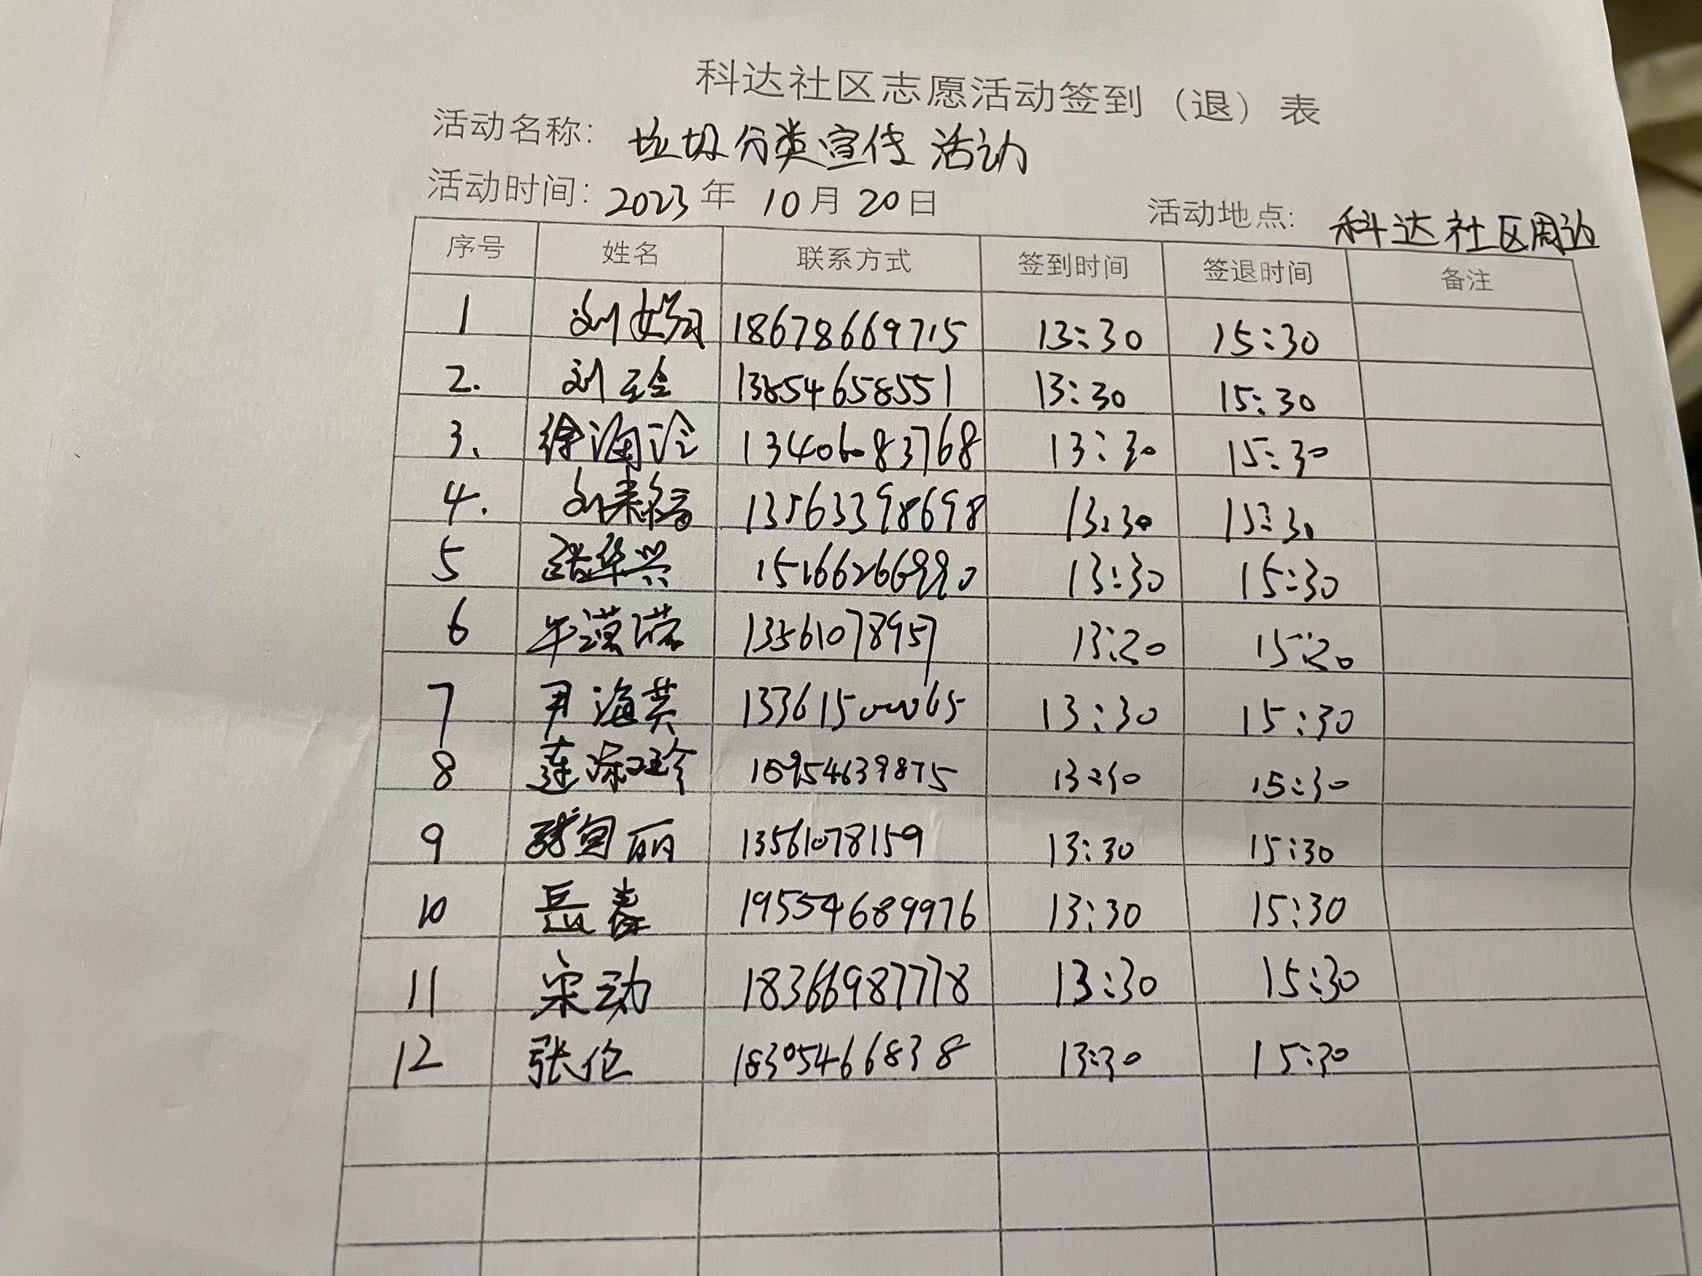 科达社区志愿活动签到（退）表
活动名称: 垃圾分类宣传活动
活动时间: 2023年 10月20日 活动地点: 科达社区周边
序号 姓名 联系方式 签到时间 签退时间 备注
1 刘 18678669715 13:30 15:30
2. 刘 13854658551 13:30 15:30
3. 徐 13406083768 13:30 15:30
4. 刘来福 13563398698 13:30 15:30
5 张华兴 13:30 15:30
6 13561078957 13:20 15:20
7 尹海英 13361500065 13:30 15:30
8 连 13:30 15:30
9 丽 13561078159 13:30 15:30
10 岳春 19554689976 13:30 15:30
11 宋动 18366987778 13:30 15:30
12 张伦 18305466838 13:30 15:30